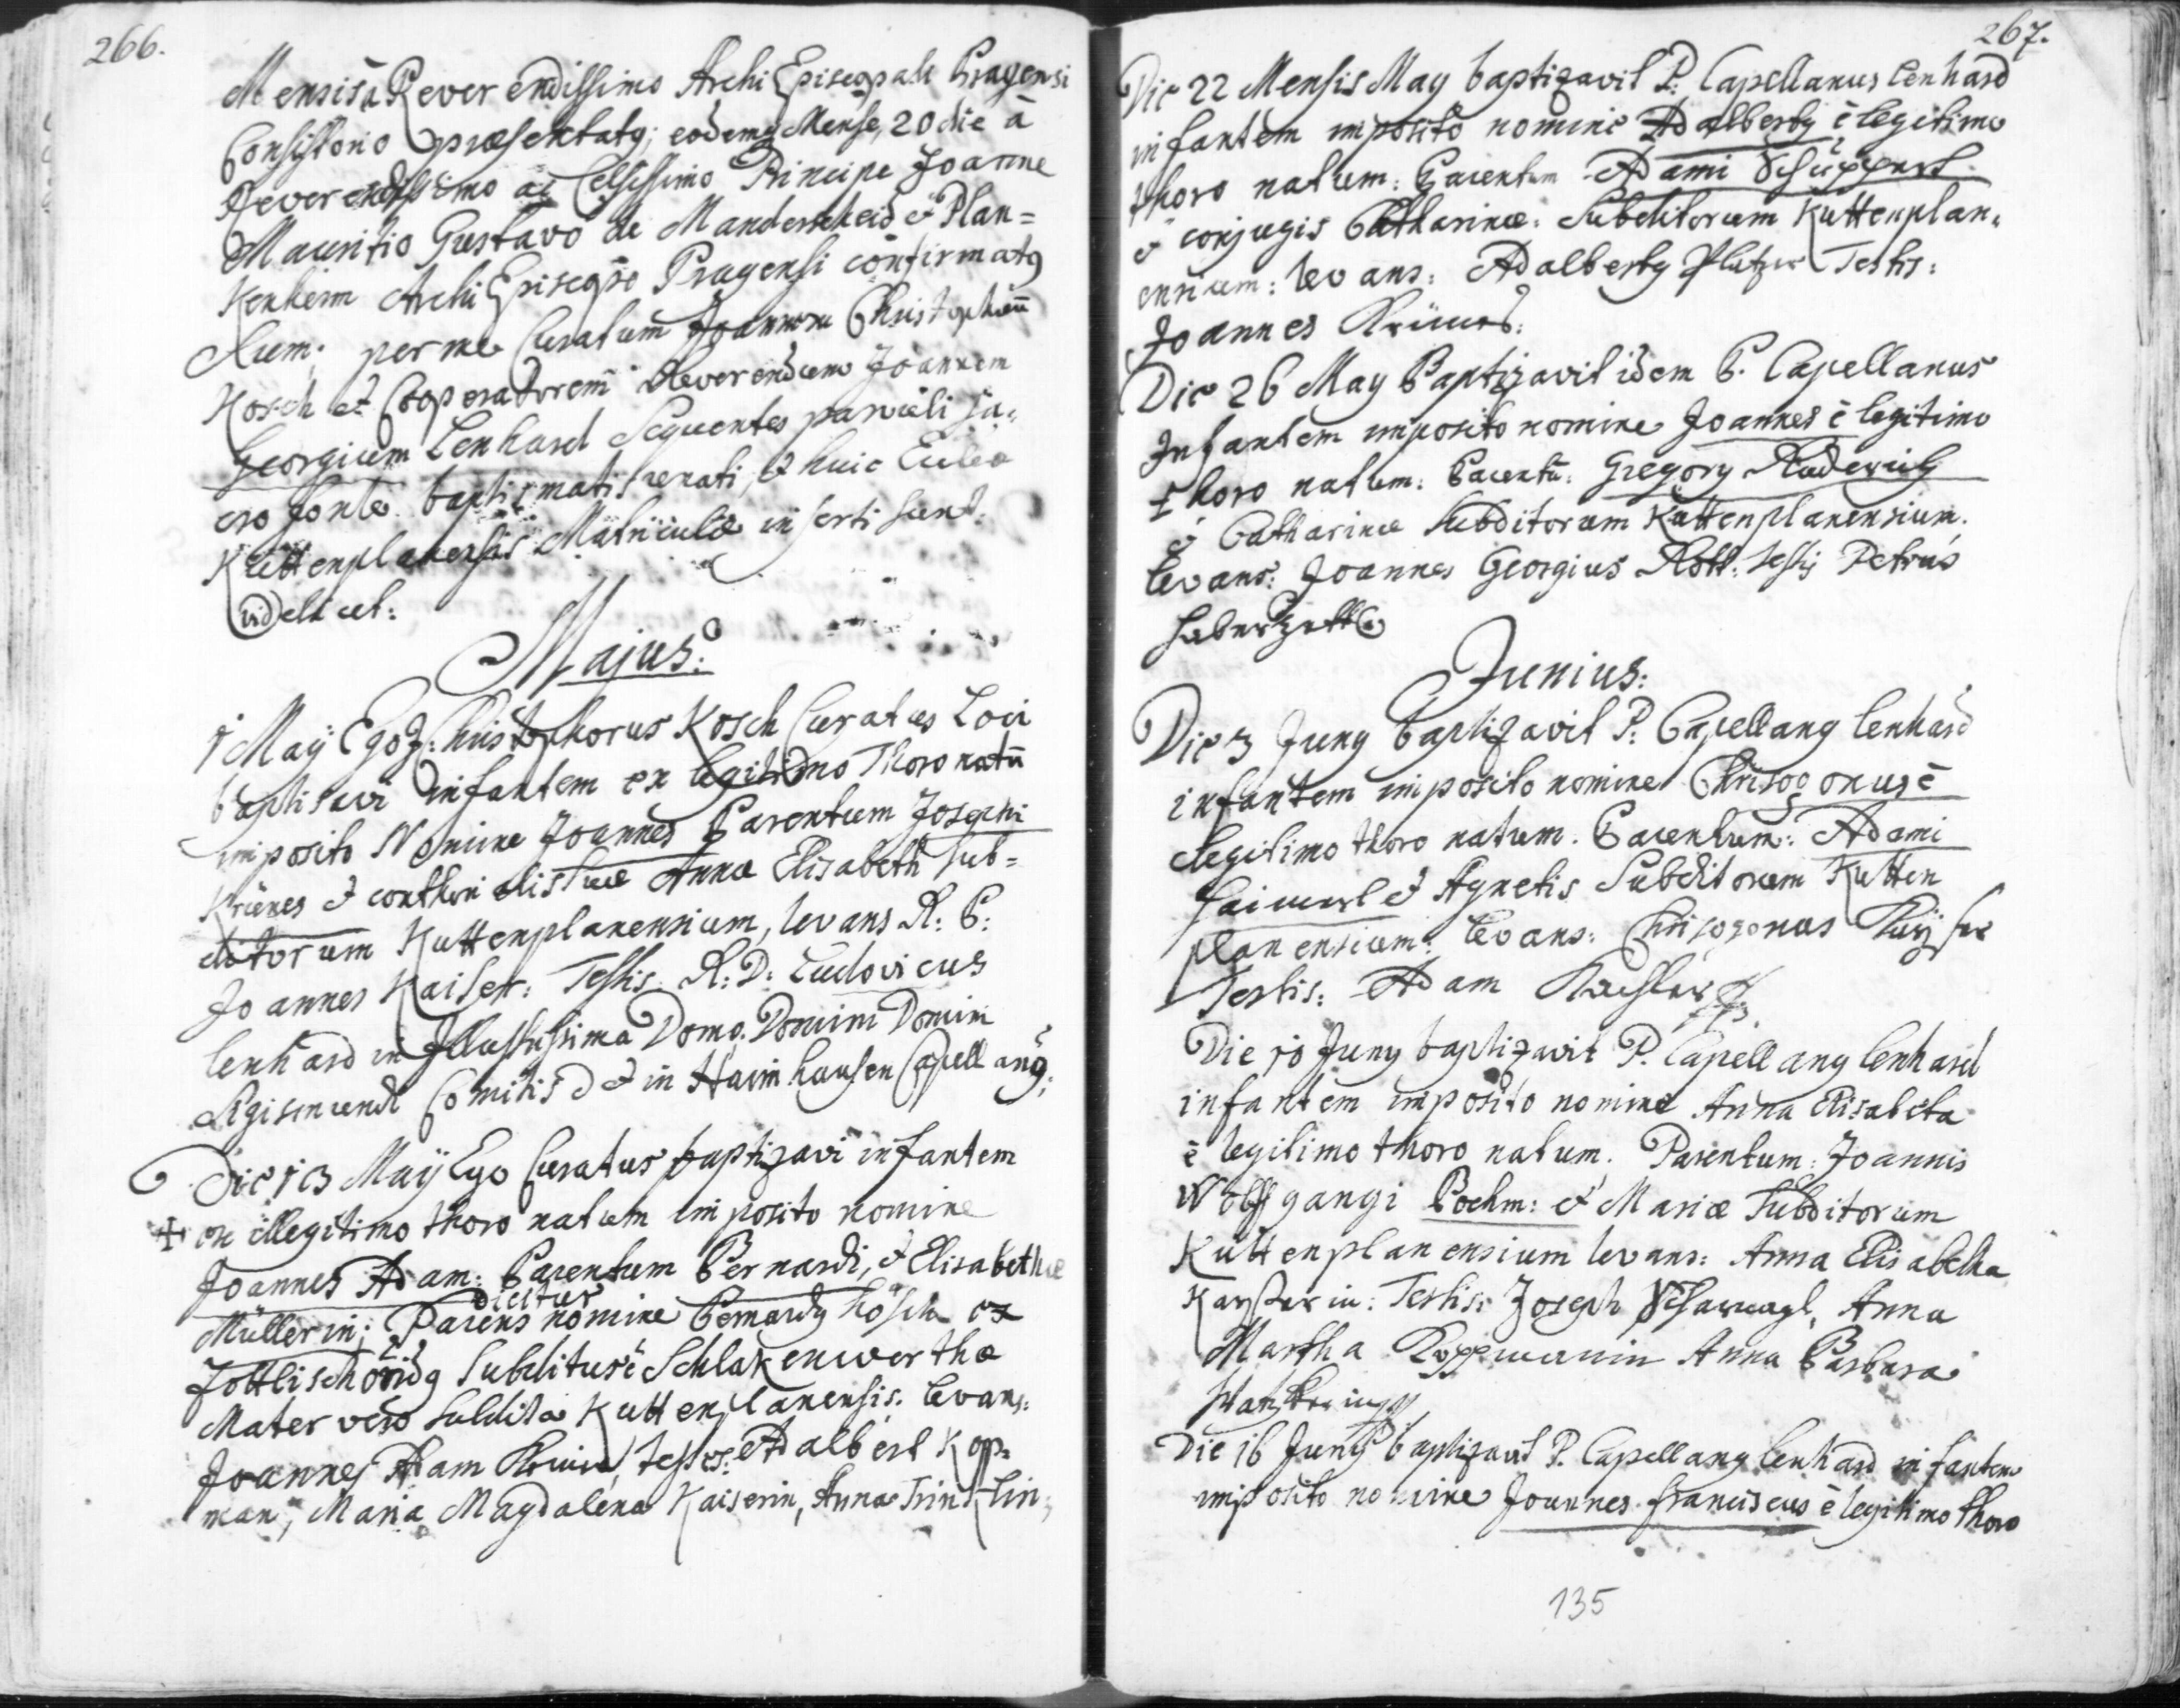 266.
Mensis à Reverendissimo Archi Episcopali Pragensi
Consistorio præsentatq; eodemq Mense, 20 die à
Reverendissimo ac Celsissimo Principe Joanne
Mauritio Gustavo de Manderscheid & Plan=
Kenheim Archi Episcopo Pragensi confirmatq
sum; per me Curatum Joannem Christophorū
Kosch et Cooperatorem Reverendum Joannem
Georgium Lenhard Sequentes parvuli sa=
cro fonte baptismatis renati, & huic Eccleæ
Kuttenplanensis Matriculæ inserti sunt.
videlicet:
Majus:
1 Maij Ego J: Christophorus Kosch Curatus Loci
baptisavi infantem ex legitimo Thoro natū
imposito Nomine Joannes Parentum Josephi
Krienes & conthoralis suæ Annæ Elisabeth sub=
ditorum Kuttenplanensium, levans R: P:
Joannes Kaiser: Testis R: D: Ludovicus
lenhard in Illustrissima Domo Domini Domini
Sigismundi Comitis D & in Haimhausen Capellanq;
Die 13 Maij Ego Curatus baptizavi infantem
ex illegitimo thoro natum imposito nomine
Joannes Adam: Parentum Bernardi, & Elisabethæ
dicitur
Müllerin; Parens nomine Bernardq Hosch ex
Subditus è Schlakenwertha
Mater vero subdita Kuttenplanensis. levans:
Joannes Adam testes: Adalbert Kop=
man, Maria Magdalena Kaiserin, Anna
267.
Die 22 Mensis May baptizavit P: Capellanus lenhard
infantem imposito nomine Adalbertq è legitimo
thoro natum: Parentum Adami Schüppert
& conjugis Catharinæ: Subditorum Kuttenplan=
ensium: levans: Adalbertq Platzer Testis:
Joannes
Die 26 May Baptizavit idem P. Capellanus
Infantem imposito nomine Joannes è legitimo
thoro natum: Parentū: Gregory
& Catharinæ Subditorum Kuttenplanensium.
levans: Joannes Georgius testis Petrus
Haberzettl
Junius:
Die 3 Juny baptizavit P: Capellanq lenhard
infantem imposito nomine Chrisogonus è
legitimo thoro natum. Parentum: Adami
Haimerl & Agnetis Subditorum Kutten
planensium: levans: Chrisogonus
Testis: Adam
Die 10 Juny baptizavit P. Capellanq lenhard
infantem imposito nomine Anna Elisabeta
è legitimo thoro natum. Parentum: Joannis
Wolffgangi Boehm: & Mariæ Subditorum
Kuttenplanensium levans: Anna Elisabetha
Testis: Joseph Anna
Martha Koppmanin Anna Barbara
Die 16 Juny baptizavit P. Capellanq lenhard infantem
imposito nomine Joannes franciscus è legitimo thoro
135